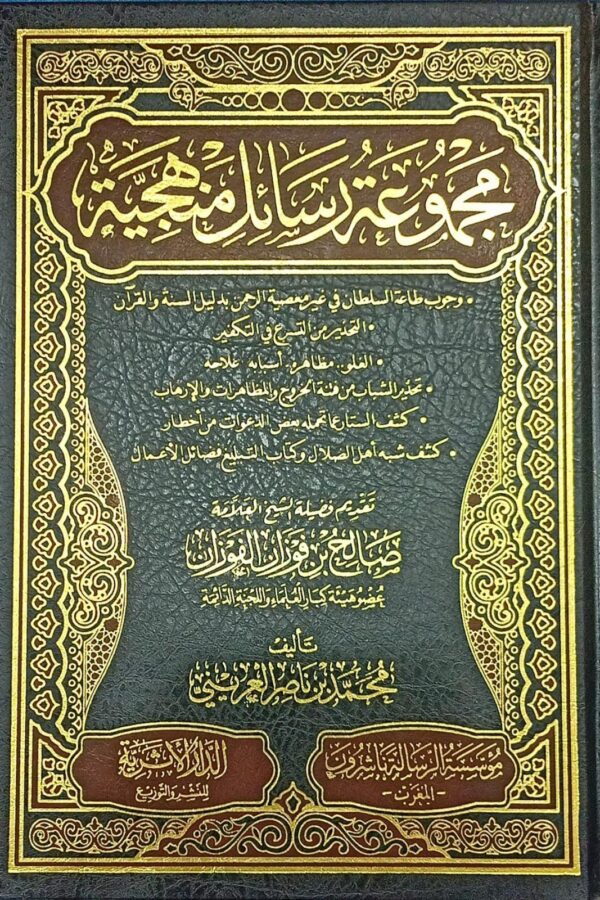 مجموعة رسائل منهجية
• وجوب طاعة السلطان في غير معصية الرحمن بدليل السنة والقرآن
• التحذير من التسرع في التكفير
• الغلو، مظاهره، أسبابه، علاجه
• تحذير الشباب من فتنة الخروج والمظاهرات والإرهاب
• كشف الستار عما تحمله بعض الدعوات من أخطار
• كشف شبه أهل الضلال وكتاب التبليغ فضائل الأعمال
تقديم فضيلة الشيخ العلامة
صالح بن فوزان الفوزان
عضو هيئة كبار العلماء واللجنة الدائمة
تأليف
محمد بن ناصر العريني
مؤسسة الرسالة ناشرون
- المغرب -
الدار الأثرية
للنشر والتوزيع